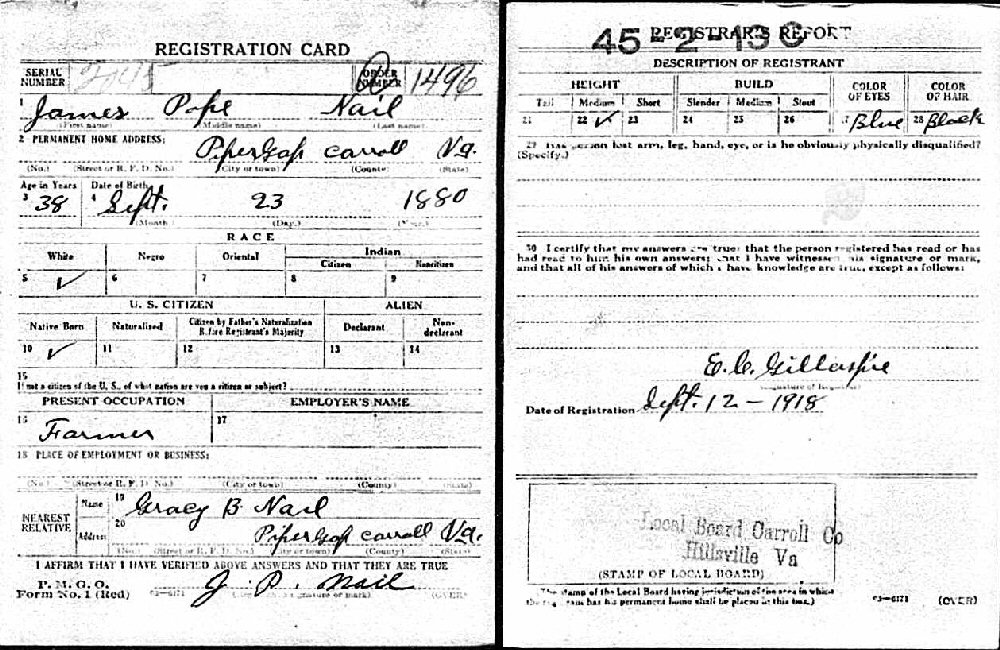 REGISTRATION CARD
SERIAL NUMBER ORDER NUMBER 1496
1 James Pope Nail
(First name) (Middle name) (Last name)
2 PERMANENT HOME ADDRESS:
PiperGap Carroll Va.
(No.) (Street or R. F. D. No.) (City or town) (County) (State)
Age in Years Date of Birth
3 38 4 Sept. 23 1880
(Month) (Day) (Year)
RACE
White Negro Oriental Indian
Citizen Noncitizen
5 ✓ 6 7 8 9
U. S. CITIZEN ALIEN
Native Born Naturalized Citizen by Father's Naturalization Before Registrant's Majority Declarant Non-declarant
10 ✓ 11 12 13 14
15
If not a citizen of the U. S., of what nation are you a citizen or subject?
PRESENT OCCUPATION EMPLOYER'S NAME
16 Farmer 17
18 PLACE OF EMPLOYMENT OR BUSINESS:
(No.) (Street or R. F. D. No.) (City or town) (County) (State)
NEAREST RELATIVE Name 19 Gracy B Nail
Address 20 PiperGap Carroll Va.
(No.) (Street or R. F. D. No.) (City or town) (County) (State)
I AFFIRM THAT I HAVE VERIFIED ABOVE ANSWERS AND THAT THEY ARE TRUE
P. M. G. O.
Form No. 1 (Red) 03—6171 J. P. Nail (OVER)
(Registrant's signature or mark)
45-2-13 C REGISTRAR'S REPORT
DESCRIPTION OF REGISTRANT
HEIGHT BUILD COLOR OF EYES COLOR OF HAIR
Tall Medium Short Slender Medium Stout
21 22 ✓ 23 24 25 26 27 Blue 28 Black
29 Has person lost arm, leg, hand, eye, or is he obviously physically disqualified?
(Specify.)
30 I certify that my answers are true; that the person registered has read or has
had read to him his own answers; that I have witnessed his signature or mark,
and that all of his answers of which I have knowledge are true, except as follows:
E. C. Gillaspie
(Signature of Registrar)
Date of Registration Sept. 12 - 1918
Local Board Carroll Co
Hillsville Va
(STAMP OF LOCAL BOARD)
(The stamp of the Local Board having jurisdiction of the area in which
the registrant has his permanent home shall be placed in this box.) 03—6171 (OVER)